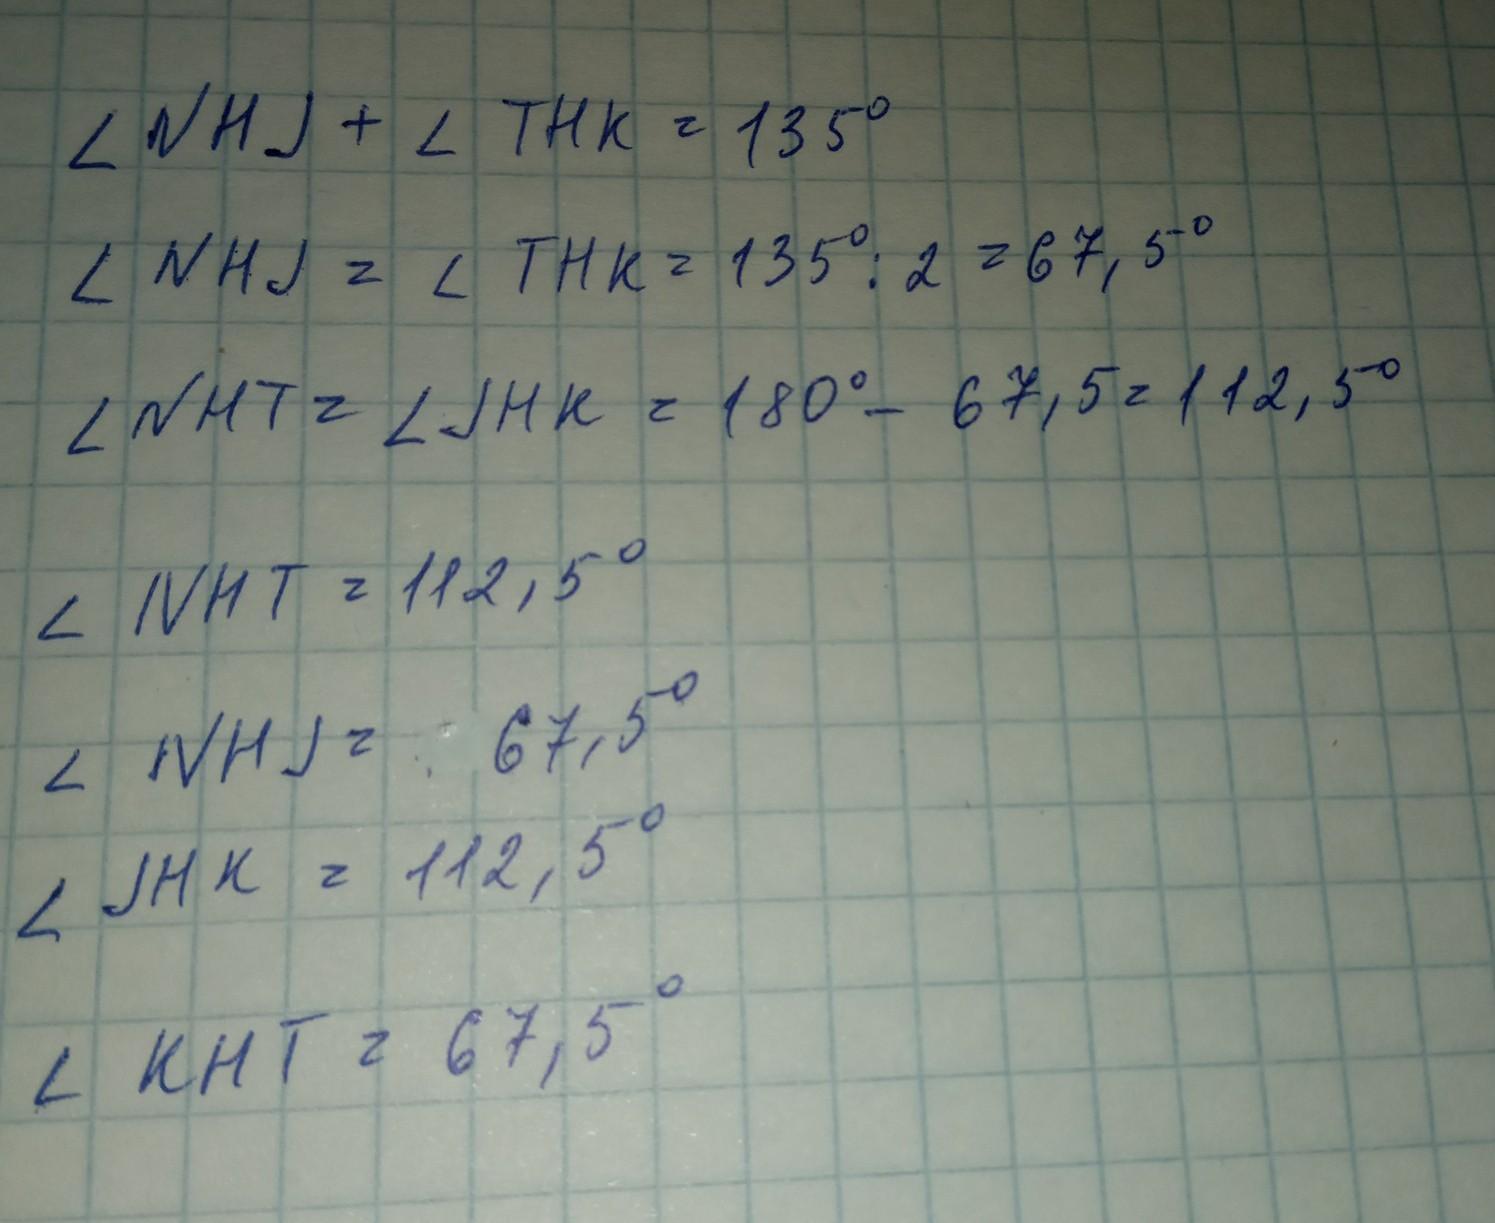 ∠ NHJ + ∠ THK = 135°
∠ NHJ = ∠ THK = 135° : 2 = 67,5°
∠ NHT = ∠ JHK = 180° - 67,5 = 112,5°
∠ NHT = 112,5°
∠ NHJ = 67,5°
∠ JHK = 112,5°
∠ KHT = 67,5°